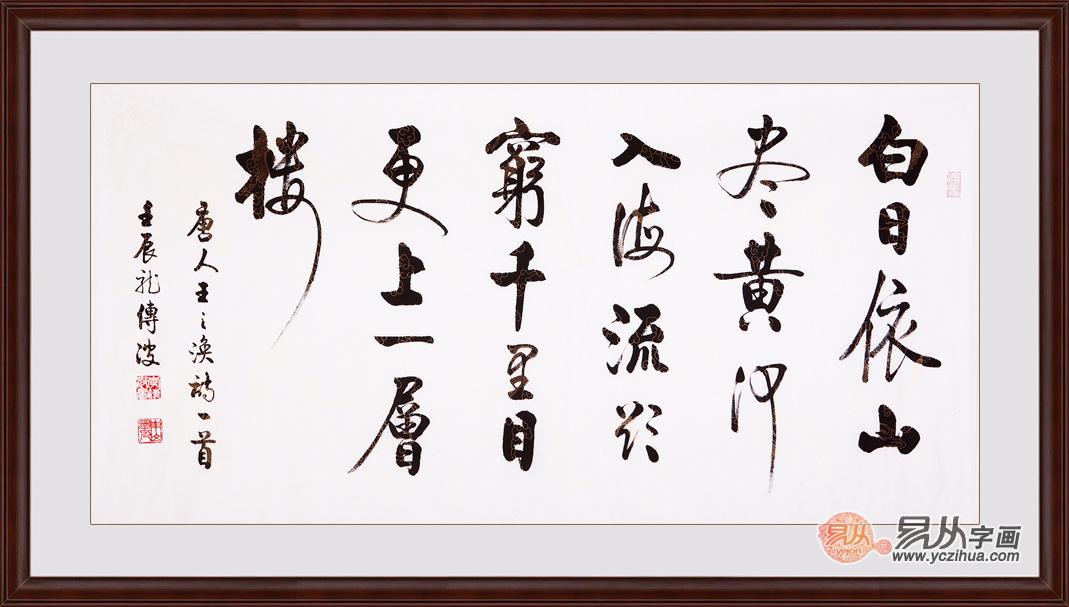 白日依山
尽黄河
入海流欲
窮千里目
更上一層
楼
唐人王之涣诗一首
壬辰龙傳波
易从
yejon
易从字画
www.yczihua.com